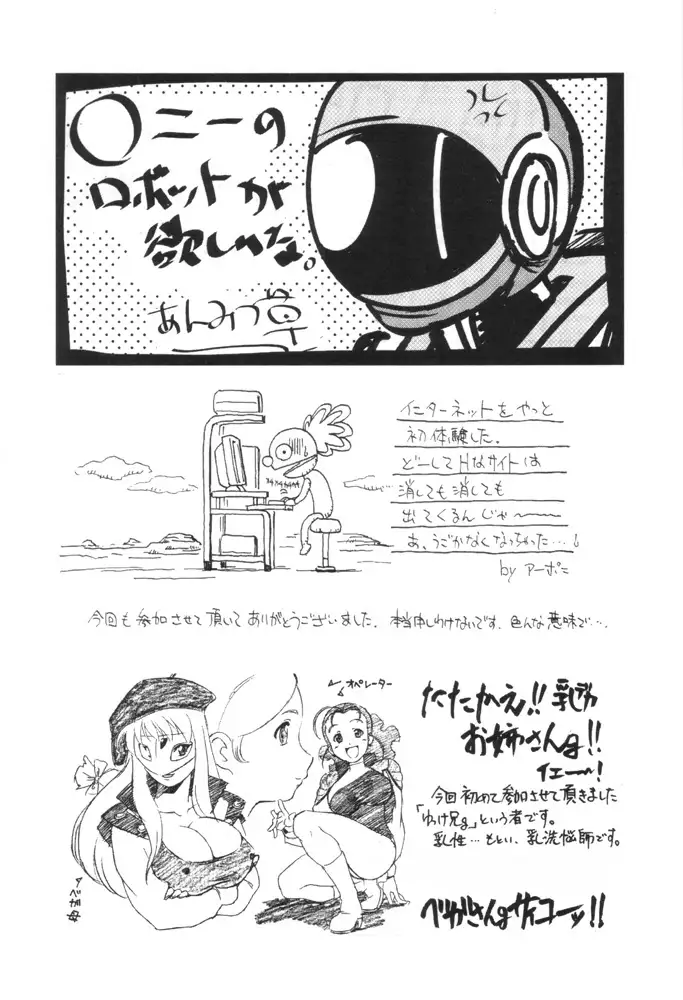 〇ニーの
ロボットが
欲しいな。
あんみつ草
インターネットをやっと
初体験した。
どーしてHなサイトは
消しても消しても
出てくるんじゃ〜〜
あ、うごかなくなっちゃった…。
by アーポニ
今回も参加させて頂いてありがとうございました。本当申しわけないです。色んな意味で…。
オペレーター
たたかえ!!乳力
お姉さん!!
イエー!
今回初めて参加させて頂きました
という者です。
乳性…もとい、乳洗悩師です。
ベガ母
ベガさんサイコーッ!!